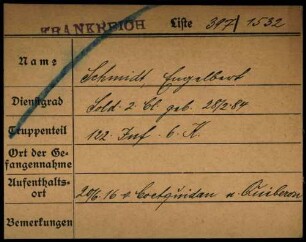 FRANKREICH Liste 307/1532
Name Schmidt, Engelbert
Dienstgrad Sold. 2 Cl. geb. 28/2.84
Truppenteil 122. Inf. 6. K.
Ort der Gefangennahme
Aufenthaltsort 20/6.16 v. Coetquidan n. Quiberon
Bemerkungen